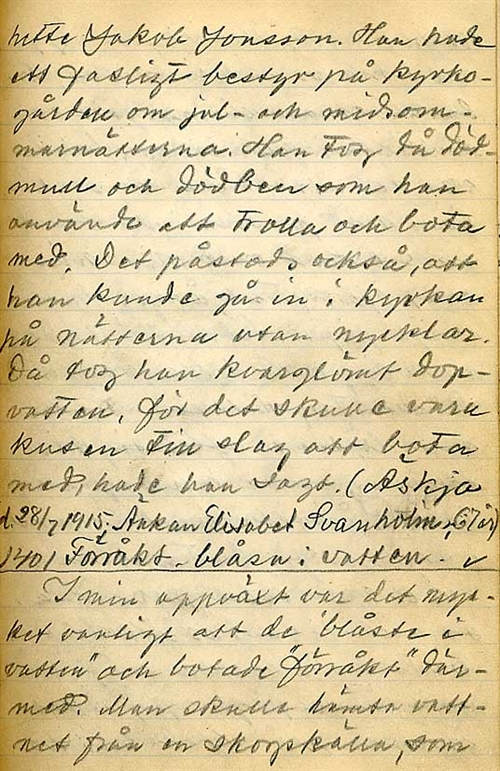 hette Jakob Jonsson. Han hade
ett fasligt bestyr på kyrko-
gården om jul- och midsom-
marnätterna. Han tog då död-
mull och dödben som han
använde att trolla och bota
med. Det påstods också, att
han kunde gå in i kyrkan
på nätterna utan nycklar.
Då tog han kvarglömt dop-
vatten, för det skulle vara
en fin slag att bota
med, hade han sagt. (Askja
d. 28/7 1915. Änkan Elisabet Svanholm, 67 år)
1401 Förråkt - blåsa i vatten. ✓
I min uppväxt var det myc-
ket vanligt att de "blåste i
vatten" och botade "förråkt" där-
med. Man skulle hämta vatt-
net från en skogskälla, som